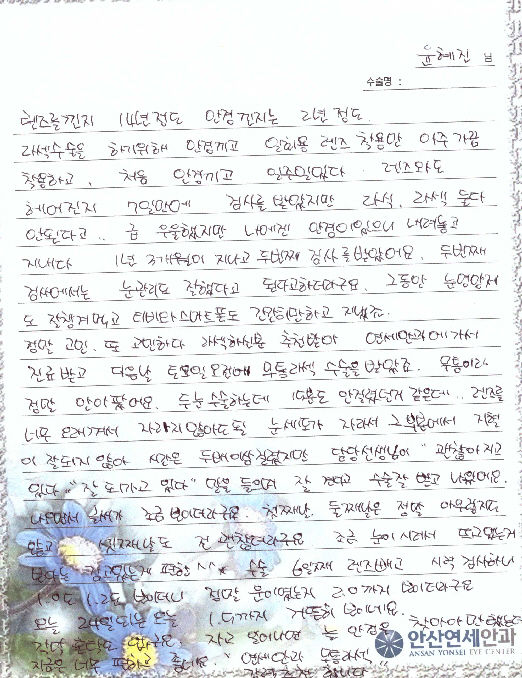 윤혜진 님
수술명 :
렌즈를낀지 14년정도 안경낀지는 21년정도.
라섹수술을 하기위해 안경끼고 일회용 렌즈 착용만 아주 가끔
착용하고. 처음 안경끼고 일주일있다 렌즈와도
헤어진지 7일만에 검사를 받았지만 라식. 라섹 둘다
안된다고.. 급 우울했지만 나에겐 안경이있으니 내려놓고
지내다 1년 3개월이 지나고 두번째 검사를받았어요. 두번째
검사에서는 눈관리도 잘했다고 된다고하더라구요. 그동안 눈영양제
도 잘챙겨먹고 티비랑스마트폰도 간단히만하고 지냈죠.
정말 고민. 또 고민하다 라섹하신분 추천받아 연세안과에가서
진료받고 다음날 토요일오전에 무통라섹 수술을 받았죠. 무통이라
정말 안아팠어요. 두눈수술하는데 10분도 안걸렸던거 같은데.. 렌즈를
너무 오래껴서 자라지않아도될 눈세포가 자라서 그부분에서 지혈
이 잘되지 않아 시간은 두배이상걸렸지만 담당선생님이 "괜찮아지고
있다" "잘 되가고 있다" 말을 들으며 잘 견디고 수술잘 받고 나왔어요.
나오면서 글씨가 조금 보이더라구요. 첫째날. 둘째날은 정말 아무렇지도
않고 셋째날도 전 괜찮더라구요 조금 눈이 시려서 뜨고있는거
보다는 감고있는게 편함 ^^* 수술 6일째 렌즈빼고 시력 검사하니
1.0도 1.2도 보이더니 집중 2.0까지 보이더라구요
오늘 오늘 1.5까지 거뜬히 보이네요.
자고 일어나면 늘 안경을 찾아야
지금은 너무 편하고 좋네요. "연세안과 무통라섹"
강력추천 합니다
안산연세안과
ANSAN YONSEI EYE CENTER